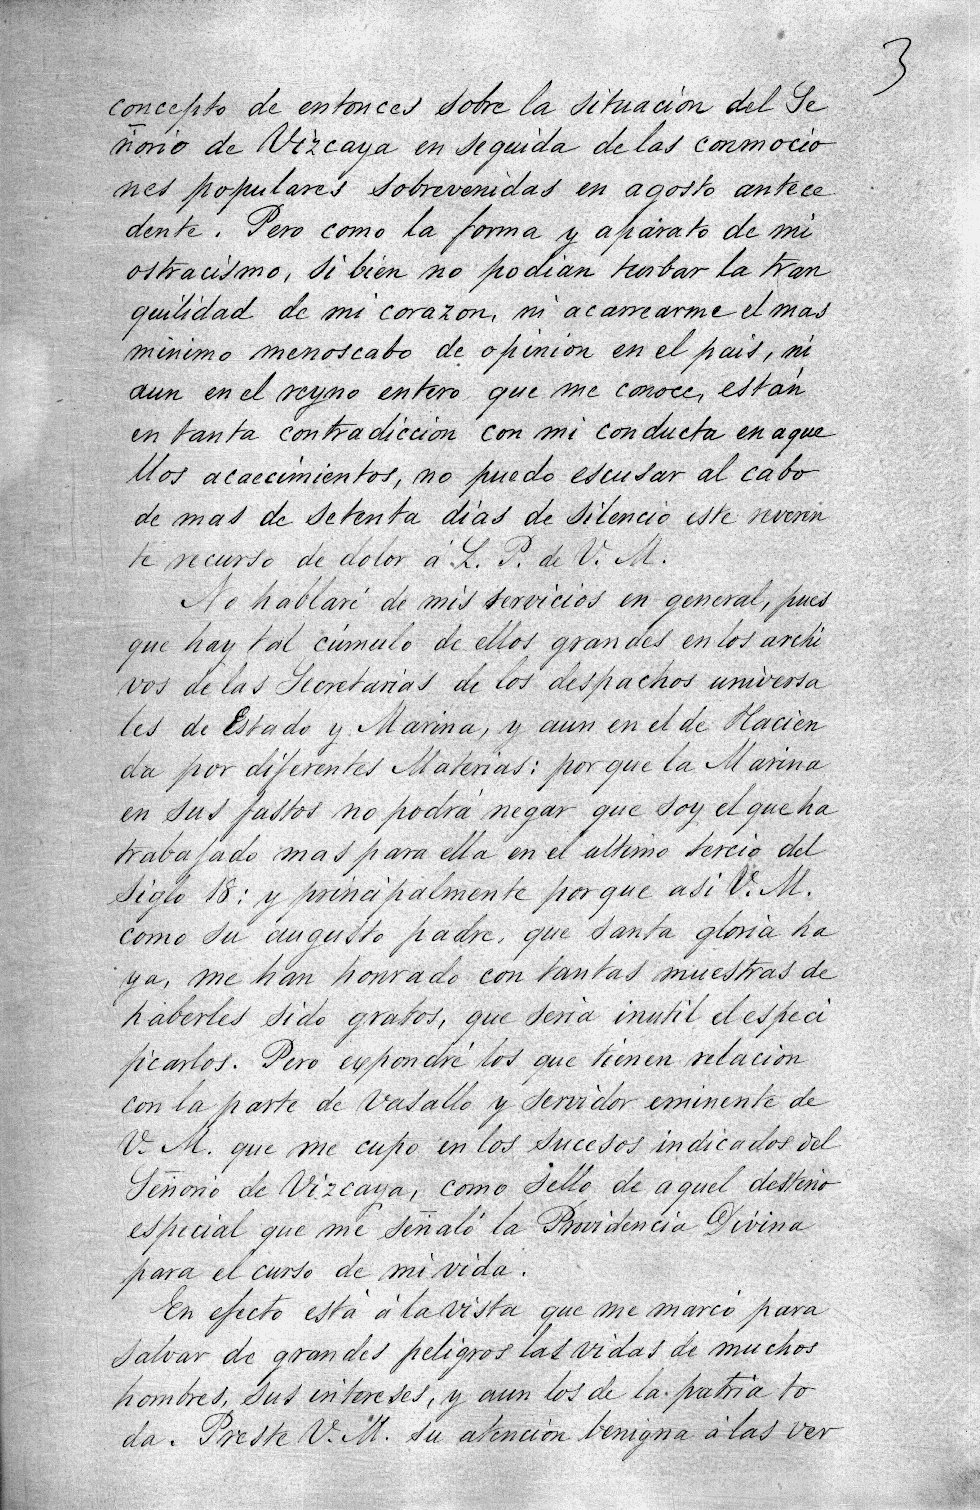 3
concepto de entonces sobre la situación del Se
ñorio de Vizcaya en seguida de las conmocio
nes populares sobrevenidas en agosto antece
dente. Pero como la forma y aparato de mi
ostracismo, si bien no podian turbar la tran
quilidad de mi corazon, ni acarrearme el mas
minimo menoscabo de opinion en el pais, ni
aun en el reyno entero que me conoce, están
en tanta contradicción con mi conducta en aque
llos acaecimientos, no puedo escusar al cabo
de mas de setenta dias de silencio este reveren
te recurso de dolor á L. P. de V. M.
No hablaré de mis servicios en general, pues
que hay tal cúmulo de ellos grandes en los archi
vos de las Secretarias de los despachos universa
les de Estado y Marina, y aun en el de Hacien
da por diferentes Materias: porque la Marina
en sus fastos no podrá negar que soy el que ha
trabajado mas para ella en el ultimo tercio del
siglo 18: y principalmente porque asi V. M.
como su augusto padre, que santa gloria ha
ya, me han honrado con tantas muestras de
haberles sido gratos, que seria inutil el especi
ficarlos. Pero expondré los que tienen relación
con la parte de vasallo y servidor eminente de
V. M. que me cupo en los sucesos indicados del
Señorio de Vizcaya, como sello de aquel destino
especial que me señaló la Providencia Divina
para el curso de mi vida.
En efecto está á la vista que me marcó para
salvar de grandes peligros las vidas de muchos
hombres, sus intereses, y aun los de la patria to
da. Preste V. M. su atención benigna á las ver